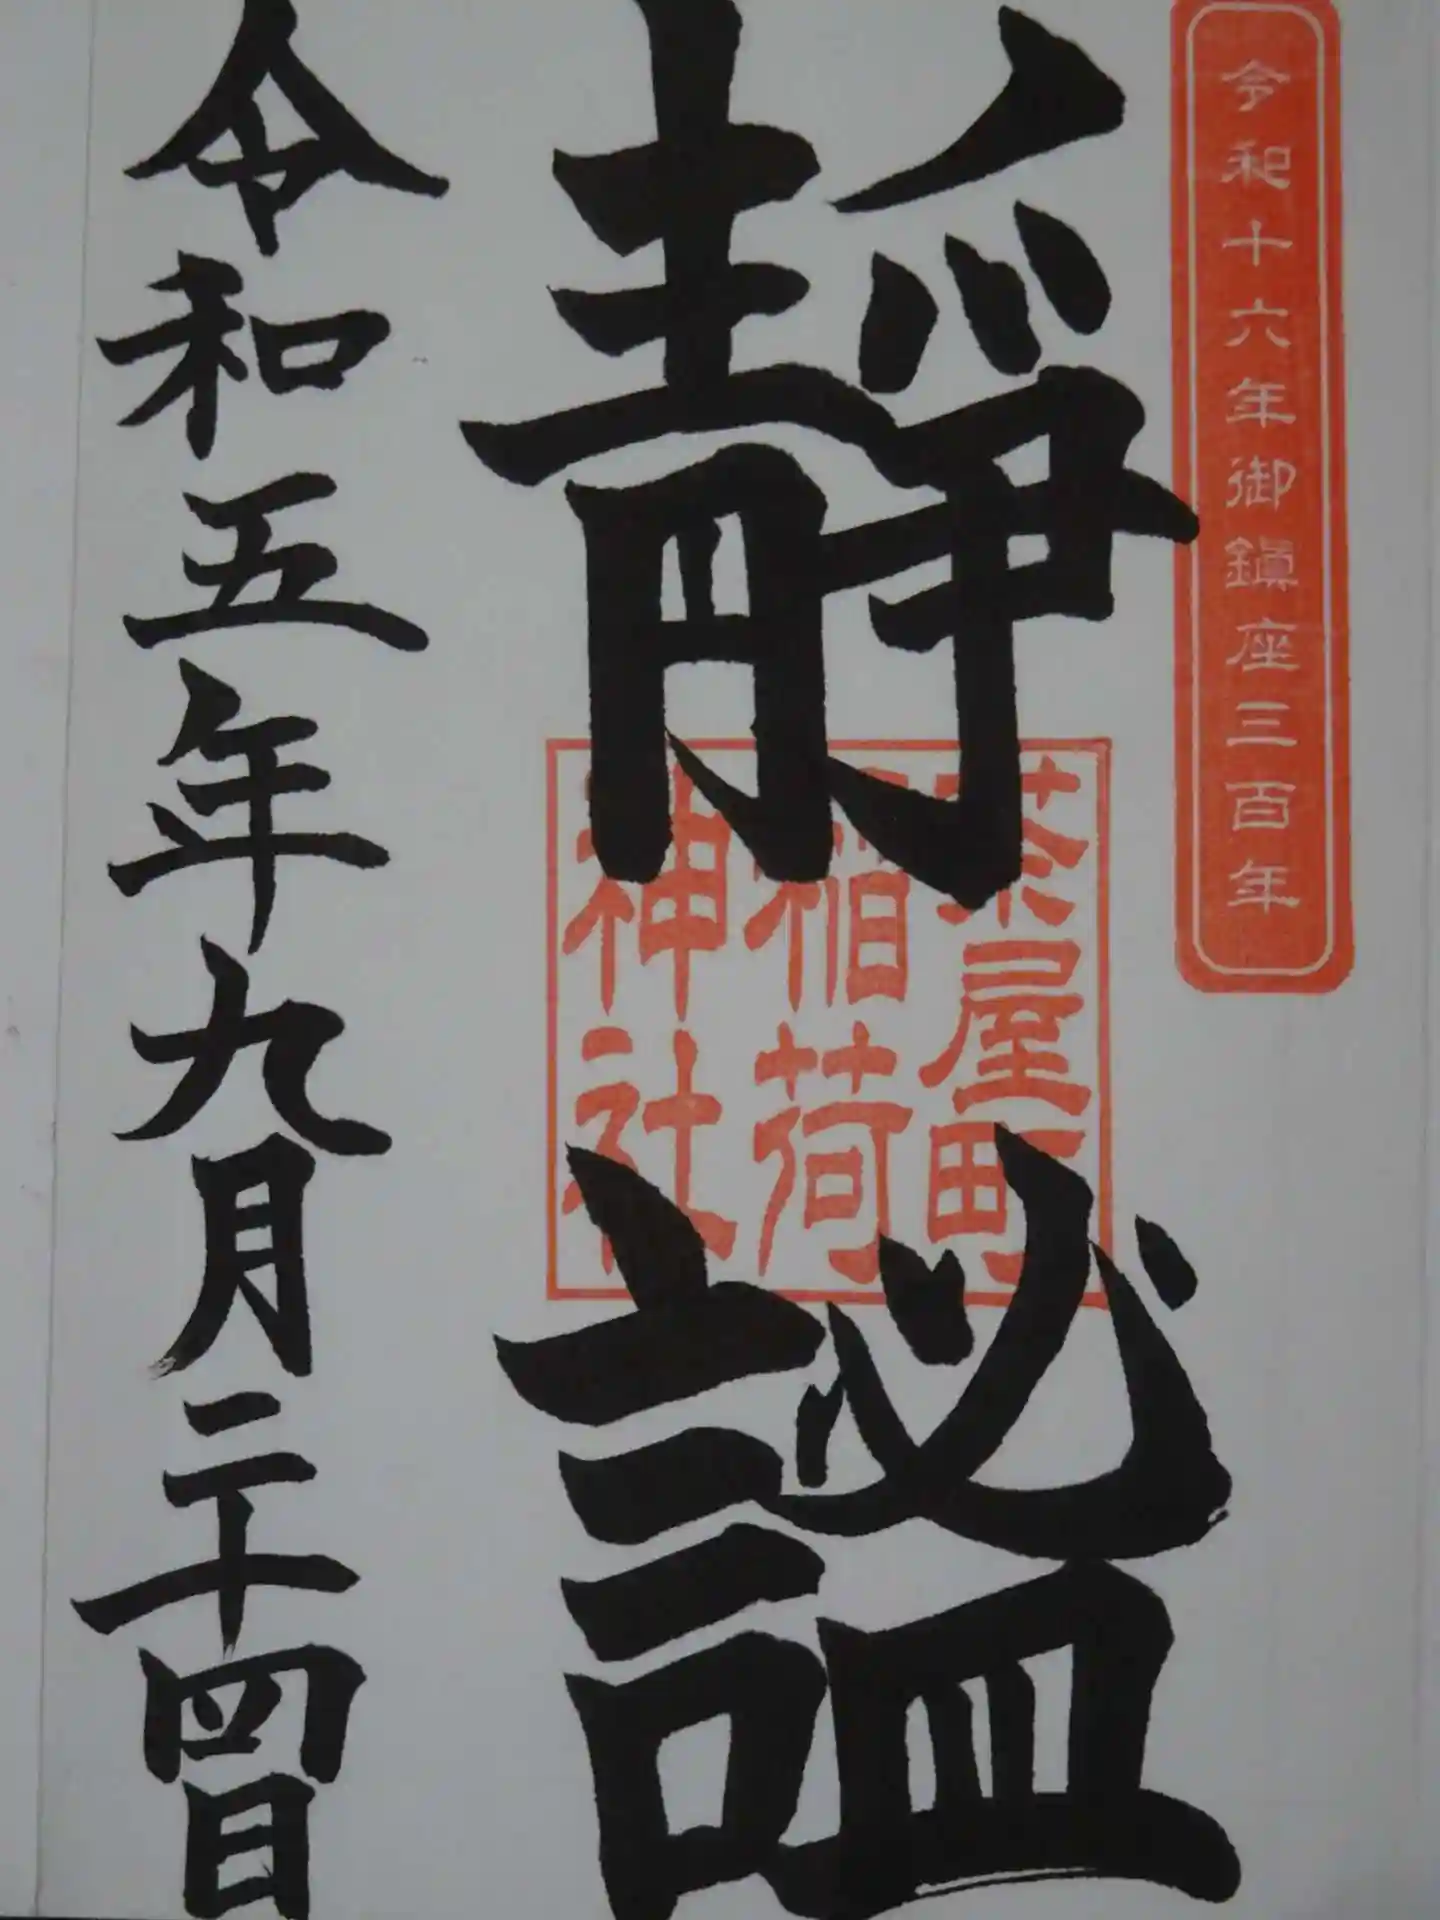 令和十六年御鎮座三百年
靜謐
茶屋町
稲荷
神社
令和五年九月二十四日